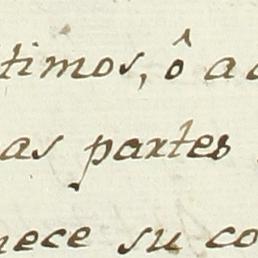 timos, ô a
as partes
nece su co